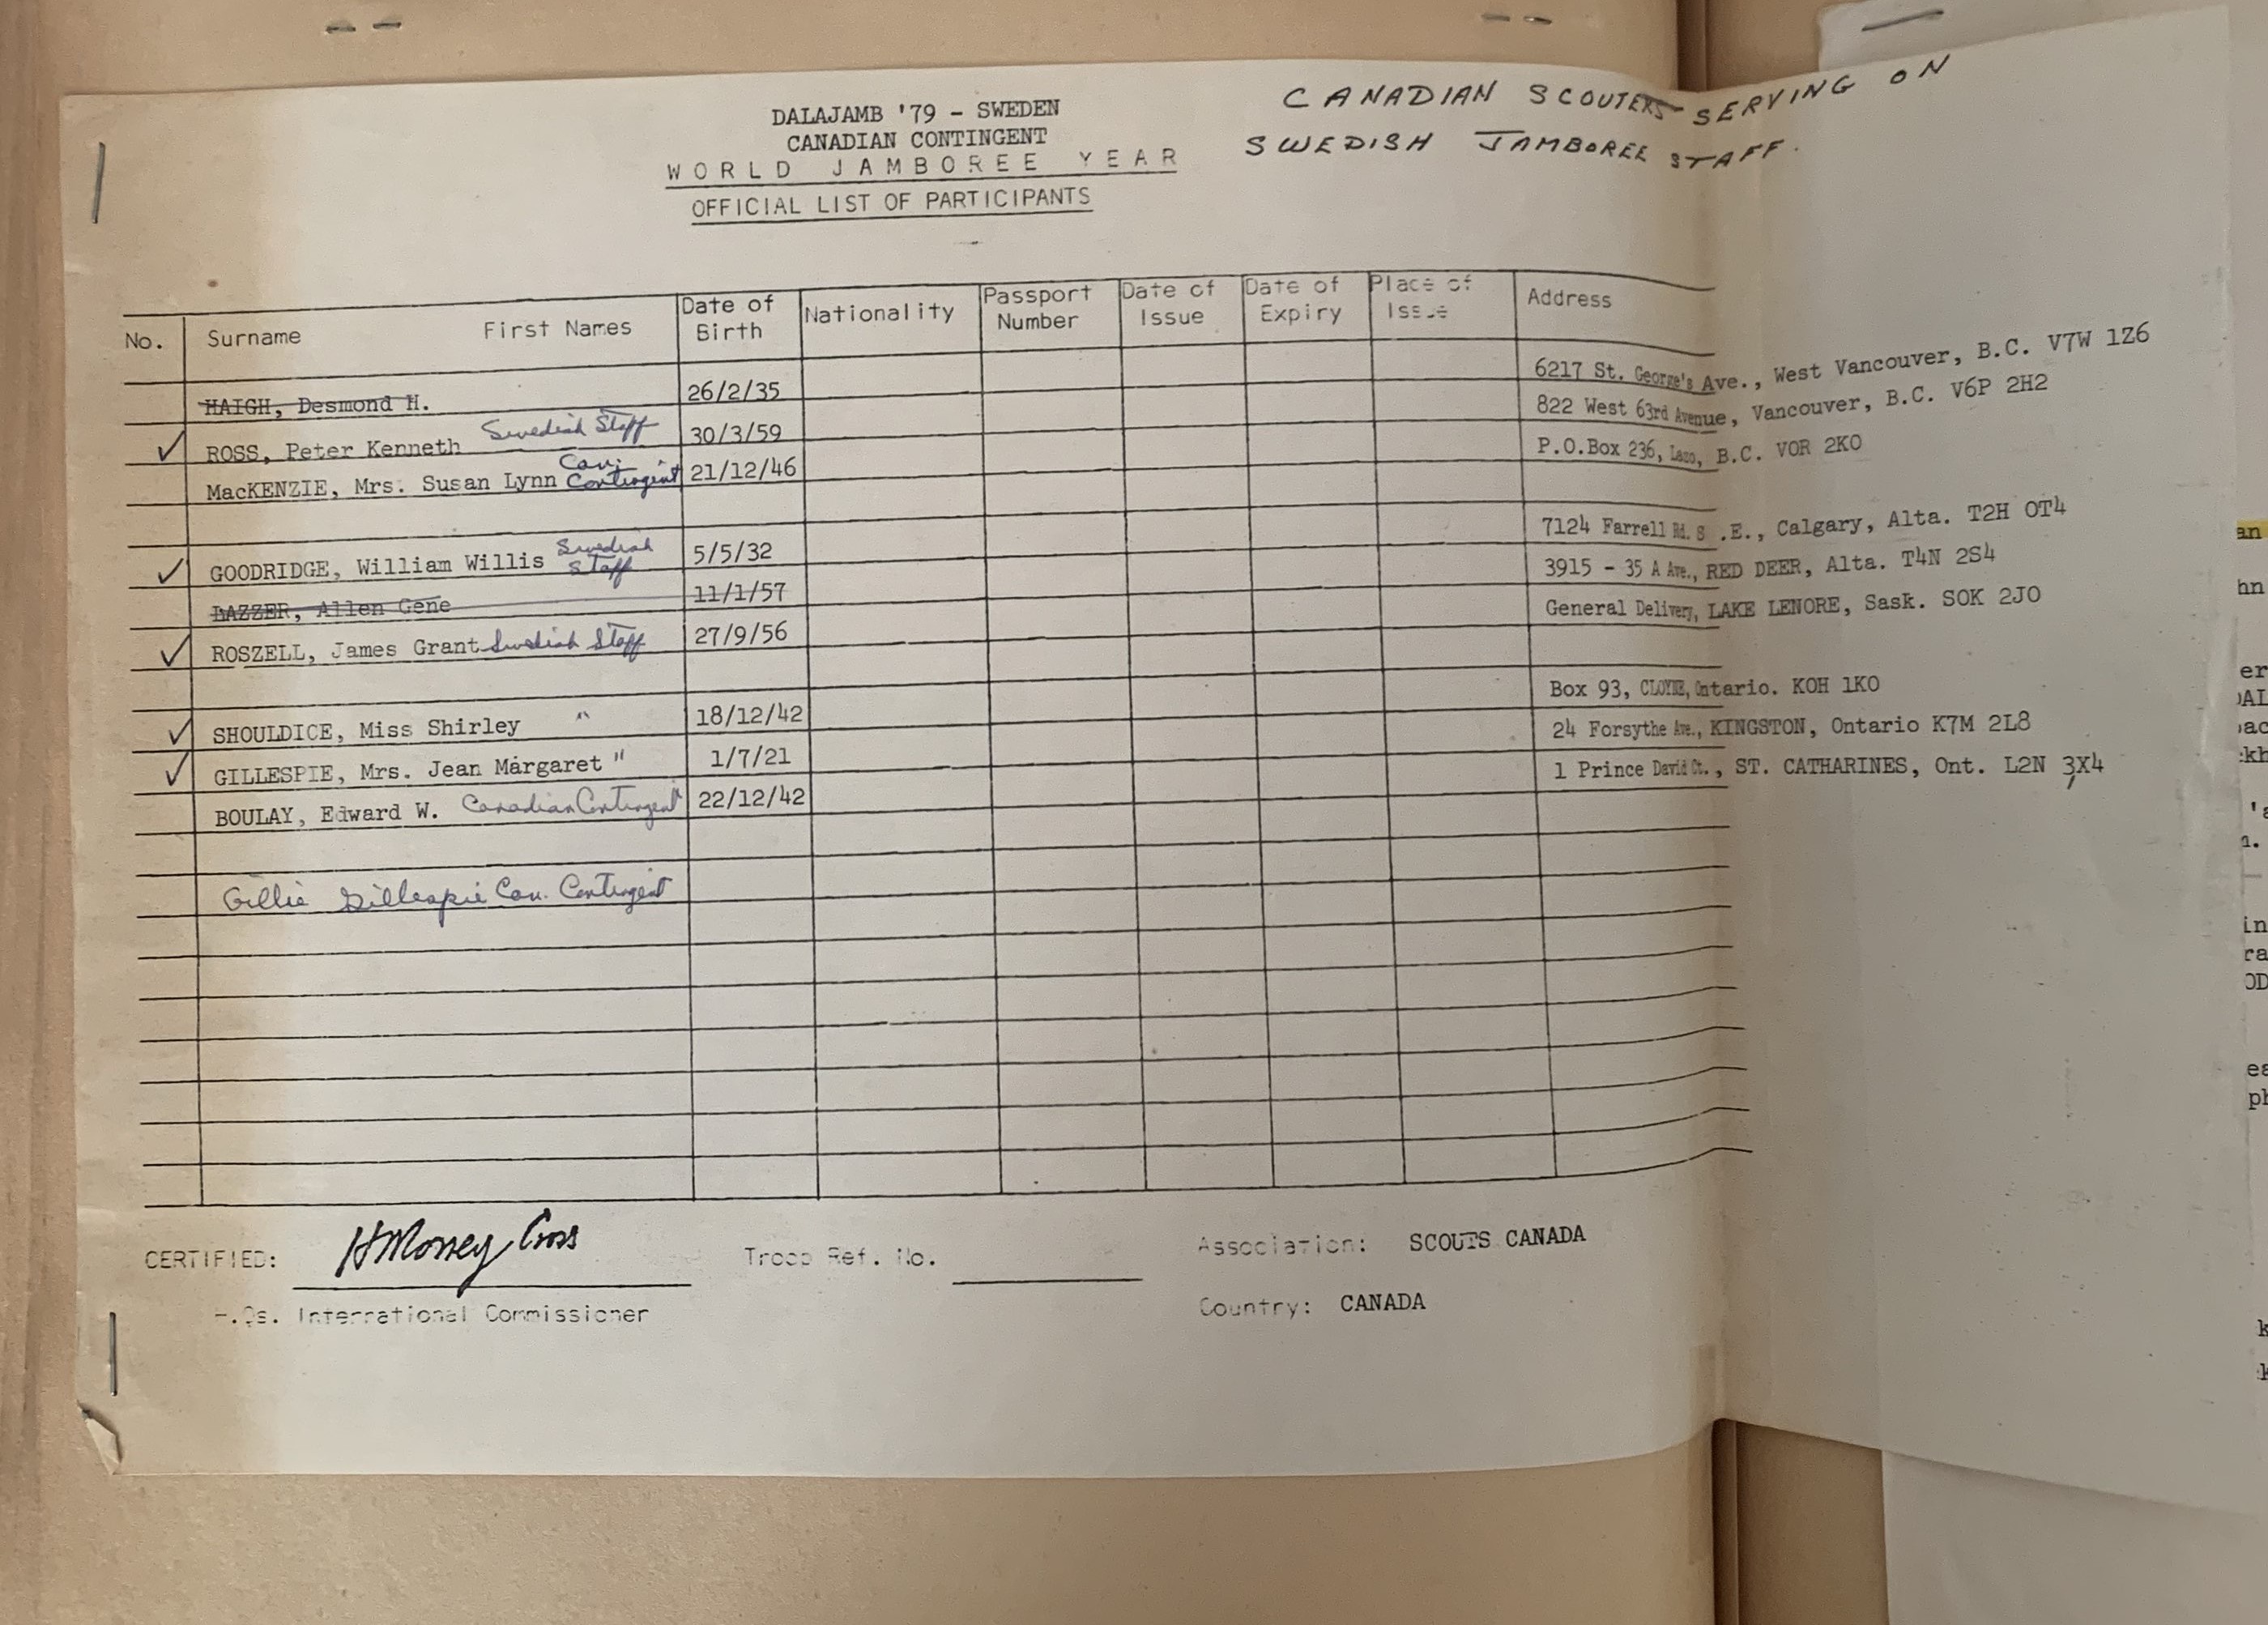 DALAJAMB '79 - SWEDEN
CANADIAN CONTINGENT
WORLD JAMBOREE YEAR
OFFICIAL LIST OF PARTICIPANTS
CANADIAN SCOUTERS SERVING ON
SWEDISH JAMBOREE STAFF.
No. Surname First Names Date of Birth Nationality Passport Number Date of Issue Date of Expiry Place of Issue Address
HAIGH, Desmond H. 26/2/35 6217 St. George's Ave., West Vancouver, B.C. V7W 1Z6
✓ ROSS, Peter Kenneth Swedish Staff 30/3/59 822 West 63rd Avenue, Vancouver, B.C. V6P 2H2
MacKENZIE, Mrs. Susan Lynn Can. Contingent 21/12/46 P.O.Box 236, Lazo, B.C. VOR 2KO
✓ GOODRIDGE, William Willis Swedish Staff 5/5/32 7124 Farrell Rd. S.E., Calgary, Alta. T2H OT4
DAZZER, Allen Gene 11/1/57 3915 - 35 A Ave., RED DEER, Alta. T4N 2S4
✓ ROSZELL, James Grant Swedish Staff 27/9/56 General Delivery, LAKE LENORE, Sask. SOK 2JO
✓ SHOULDICE, Miss Shirley " 18/12/42 Box 93, CLOYNE, Ontario. KOH 1KO
✓ GILLESPIE, Mrs. Jean Margaret " 1/7/21 24 Forsythe Ave., KINGSTON, Ontario K7M 2L8
BOULAY, Edward W. Canadian Contingent 22/12/42 1 Prince David Ct., ST. CATHARINES, Ont. L2N 3X4
Gillie Gillespie Can. Contingent
CERTIFIED: H Morrey Cross Troop Ref. No. Association: SCOUTS CANADA
H.Qs. International Commissioner Country: CANADA